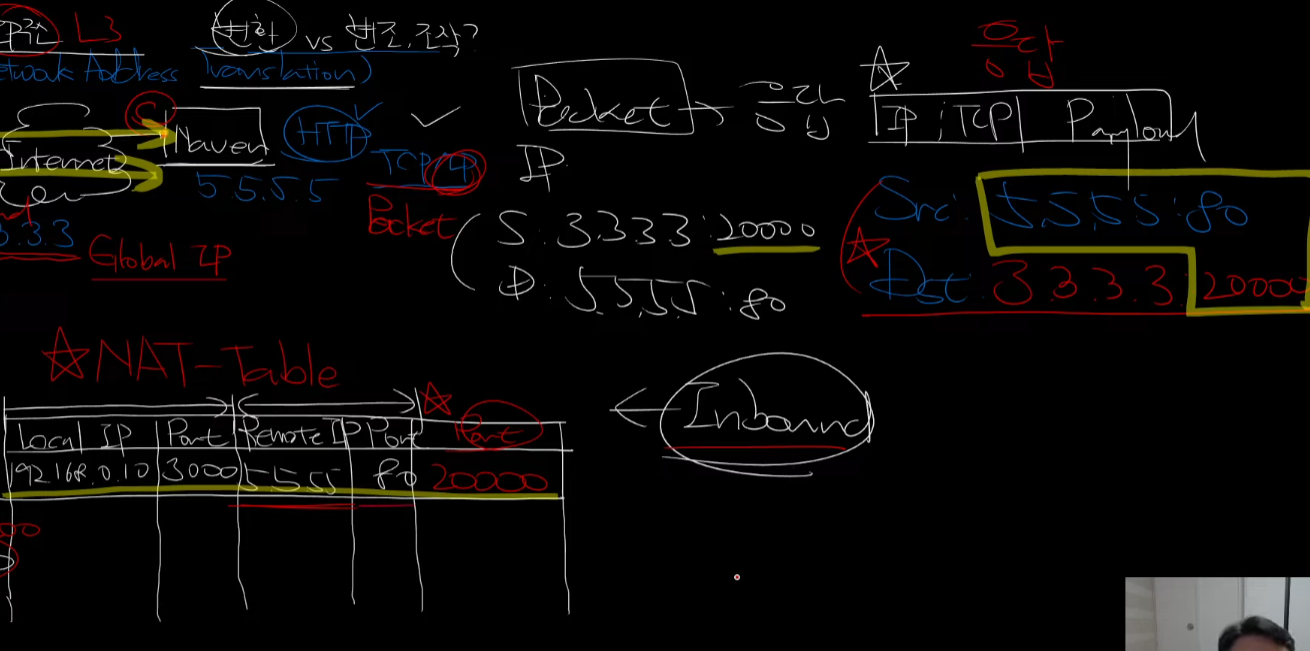 IP주소 L3
변환 vs 변조, 조작?
Network Address Translation)
S
Internet
Naver
HTTP
5.5.5.5
TCP/IP
Packet
3.3.3
Global IP
Packet → 응답
IP
S: 3.3.3.3:20000
D: 5.5.5.5:80
응답
IP TCP Payload
Src: 5.5.5.5:80
Dst: 3.3.3.3:20000
NAT-Table
Local IP Port Remote IP Port Port
192.168.0.10 3000 5.5.5.5 80 20000
Inbound